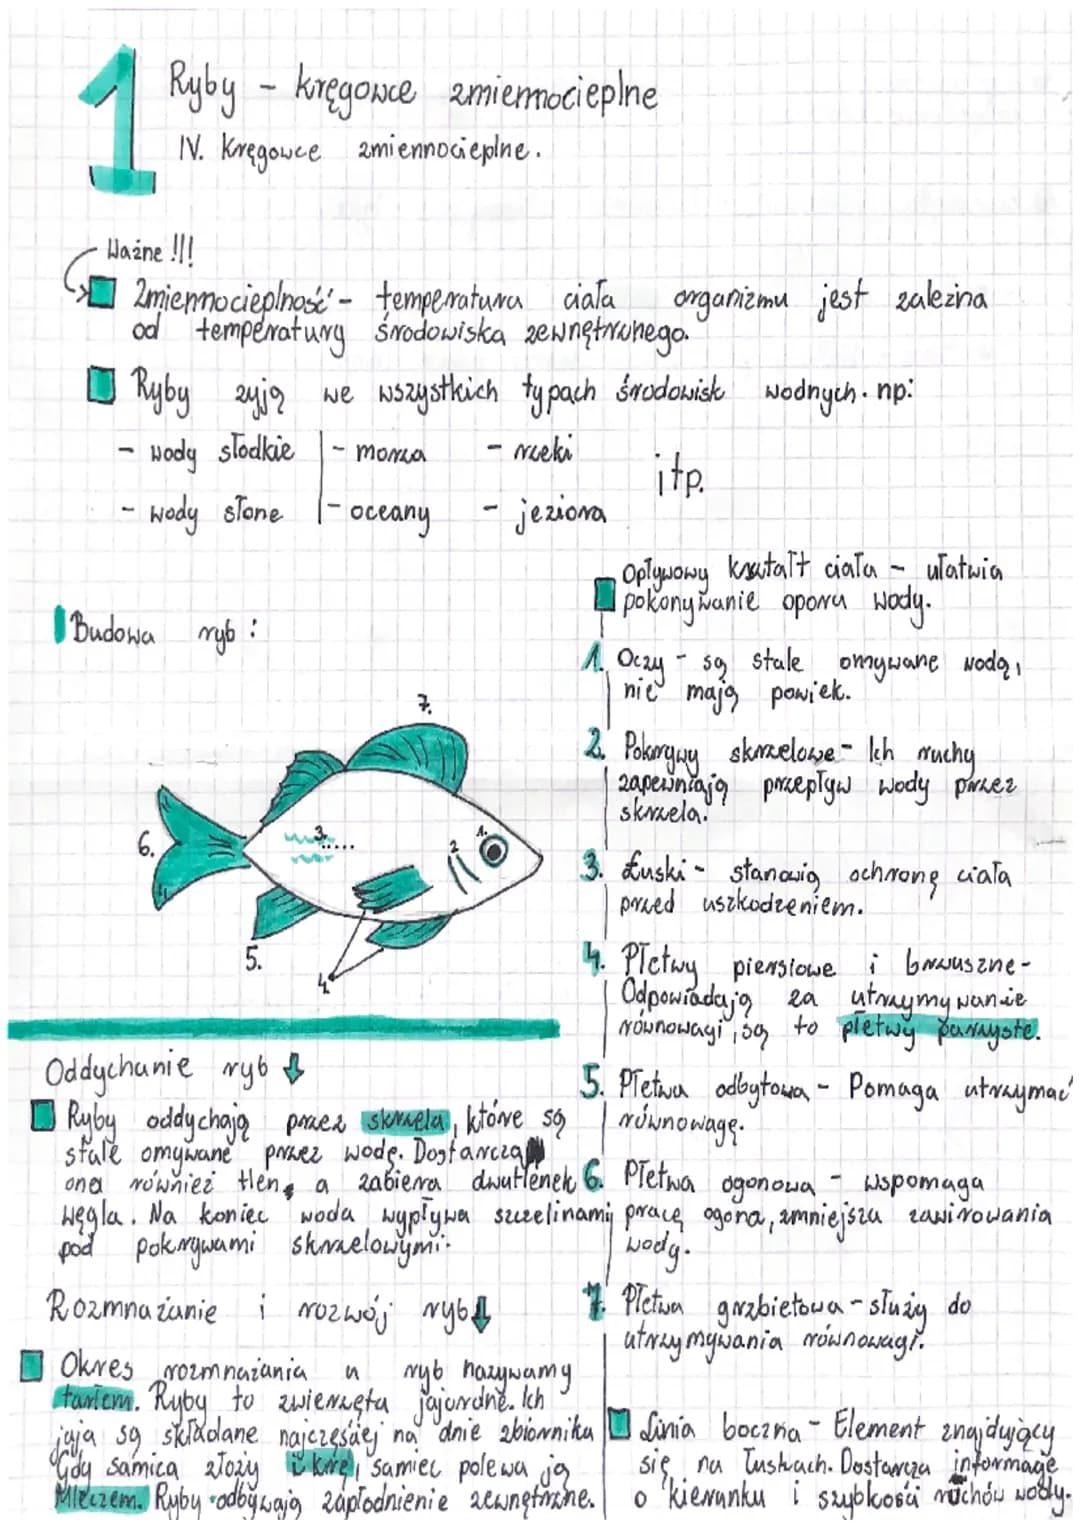 1
Ryby - kręgowce zmiennocieplne
IV. Kręgowce zmiennocieplne.
Ważne !!!
Zmiennocieplność - temperatura ciała organizmu jest zależna
od temperatury środowiska zewnętrznego.
Ryby żyją we wszystkich typach środowisk wodnych. np:
- wody słodkie - morza - rzeki
itp.
- wody słone - oceany - jeziora
Budowa ryb:
7.
6.
3.
2
1.
5.
4.
Oddychanie ryb
Ryby oddychają przez skrzela, które są
stale omywane przez wodę. Dostarcza
ona również tlen, a zabiera dwutlenek
węgla. Na koniec woda wypływa szczelinami
pod pokrywami skrzelowymi.
Rozmnażanie i rozwój ryb
Okres rozmnażania u ryb nazywamy
tarłem. Ryby to zwierzęta jajorodne. Ich
jaja są składane najczęściej na dnie zbiornika
Gdy samica złoży ikrę, samiec polewa ją
Mleczem. Ryby odbywają zapłodnienie zewnętrzne.
Opływowy kształt ciała - ułatwia
pokonywanie oporu wody.
1. Oczy - są stale omywane wodą,
nie mają powiek.
2. Pokrywy skrzelowe - Ich ruchy
zapewniają przepływ wody przez
skrzela.
3. Łuski - stanowią ochronę ciała
przed uszkodzeniem.
4. Płetwy piersiowe i brzuszne -
Odpowiadają za utrzymywanie
równowagi, są to płetwy parzyste.
5. Płetwa odbytowa - Pomaga utrzymać
równowagę.
6. Płetwa ogonowa - wspomaga
pracę ogona, zmniejsza zawirowania
wody.
7. Płetwa grzbietowa - służy do
utrzymywania równowagi.
Linia boczna - Element znajdujący
się na łuskach. Dostarcza informacje
o kierunku i szybkości ruchów wody.